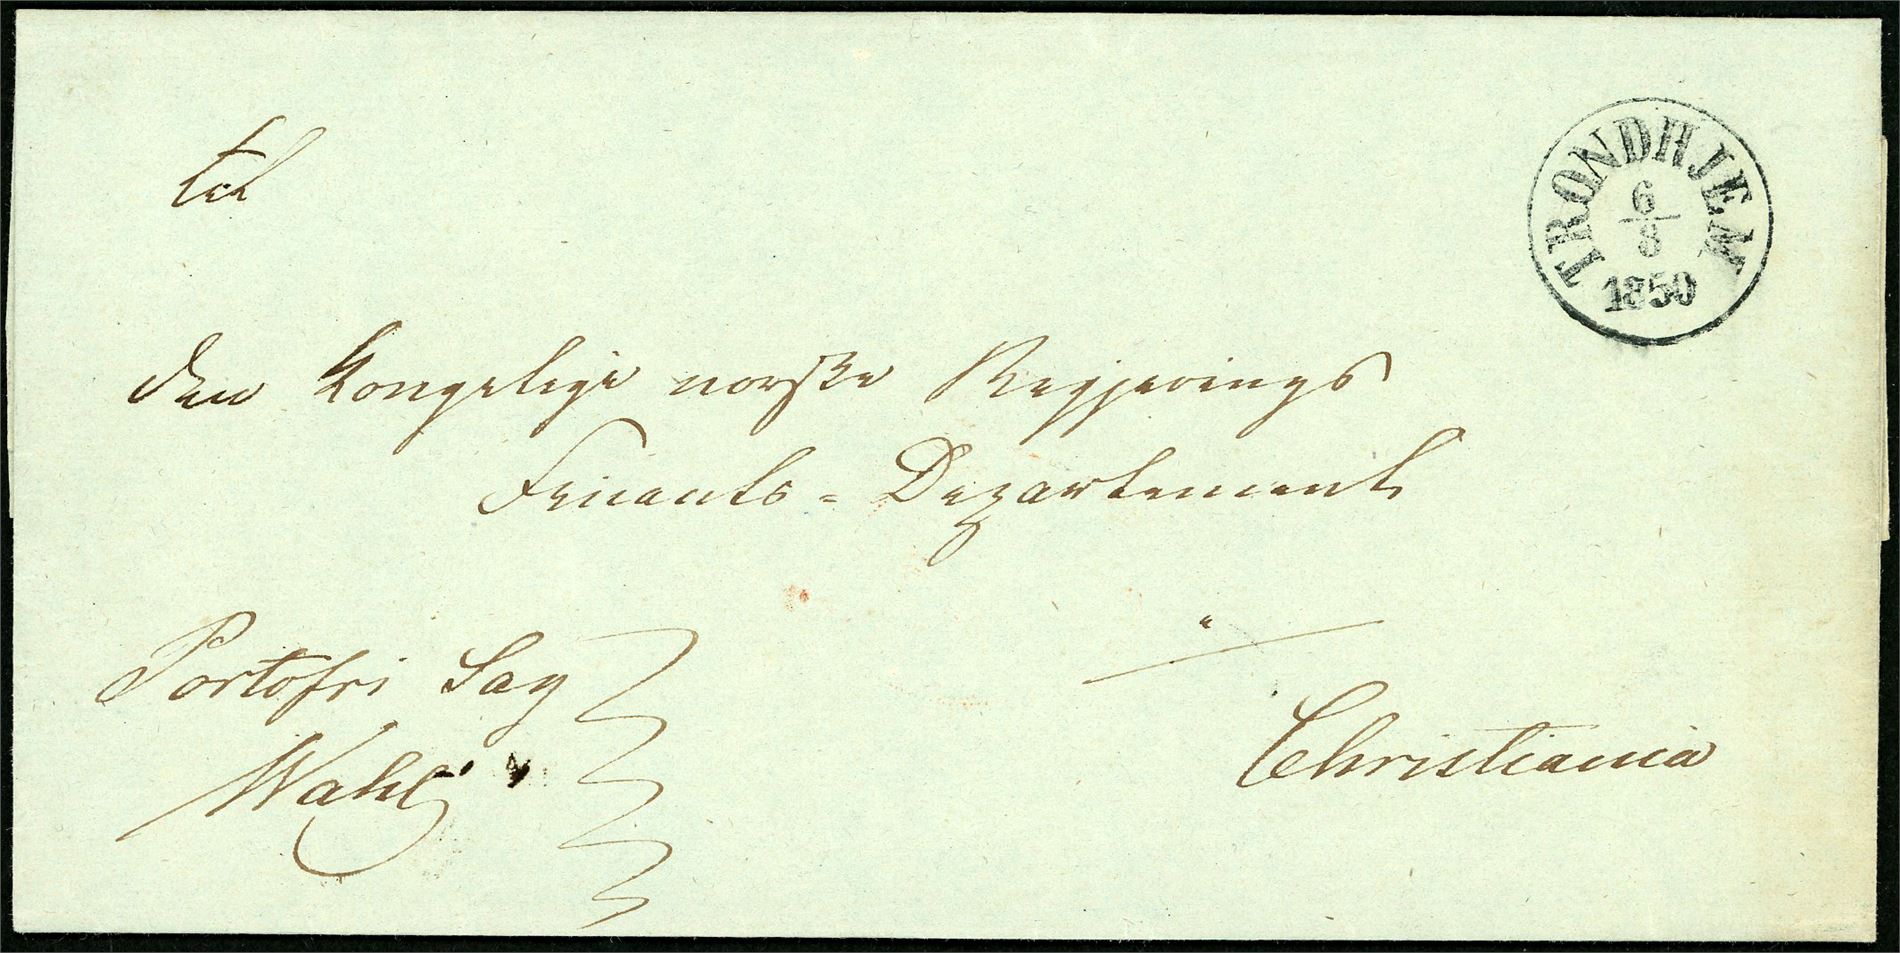 Til
TRONDHJEM
6/8
1850
den Kongelige norske Regjerings
Finants=Departement
Portofri Sag
Wahl
Christiania